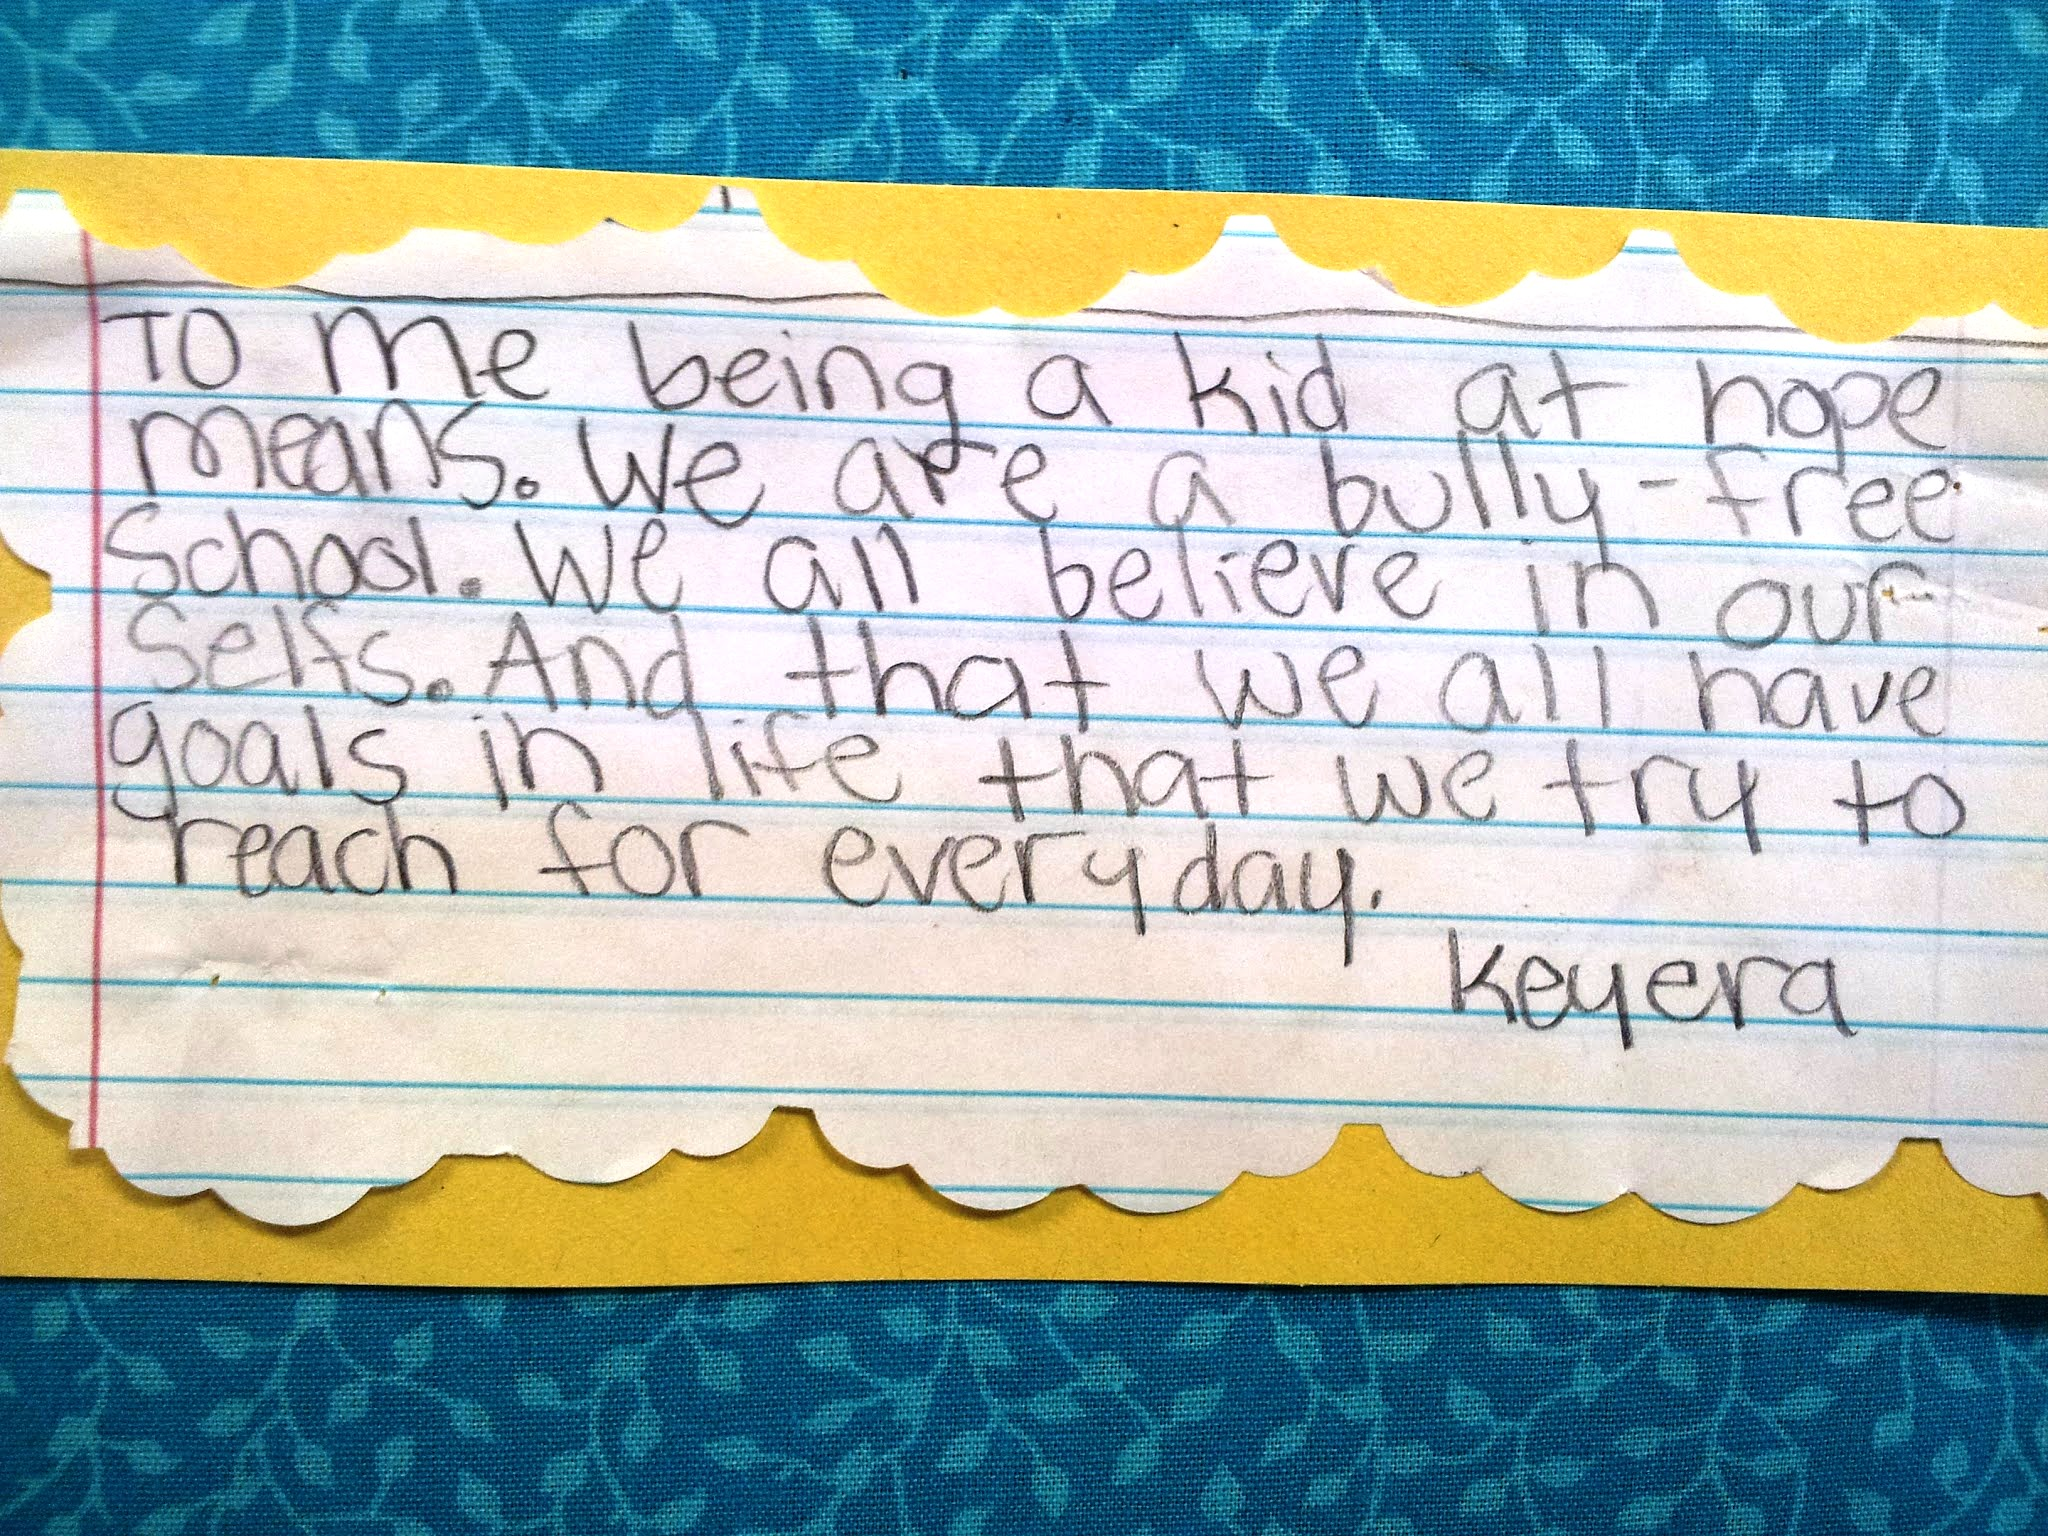 To me being a kid at hope
means. We are a bully-free
School. We all believe in our
Selfs. And that we all have
goals in life that we try to
reach for everyday.
Keyera